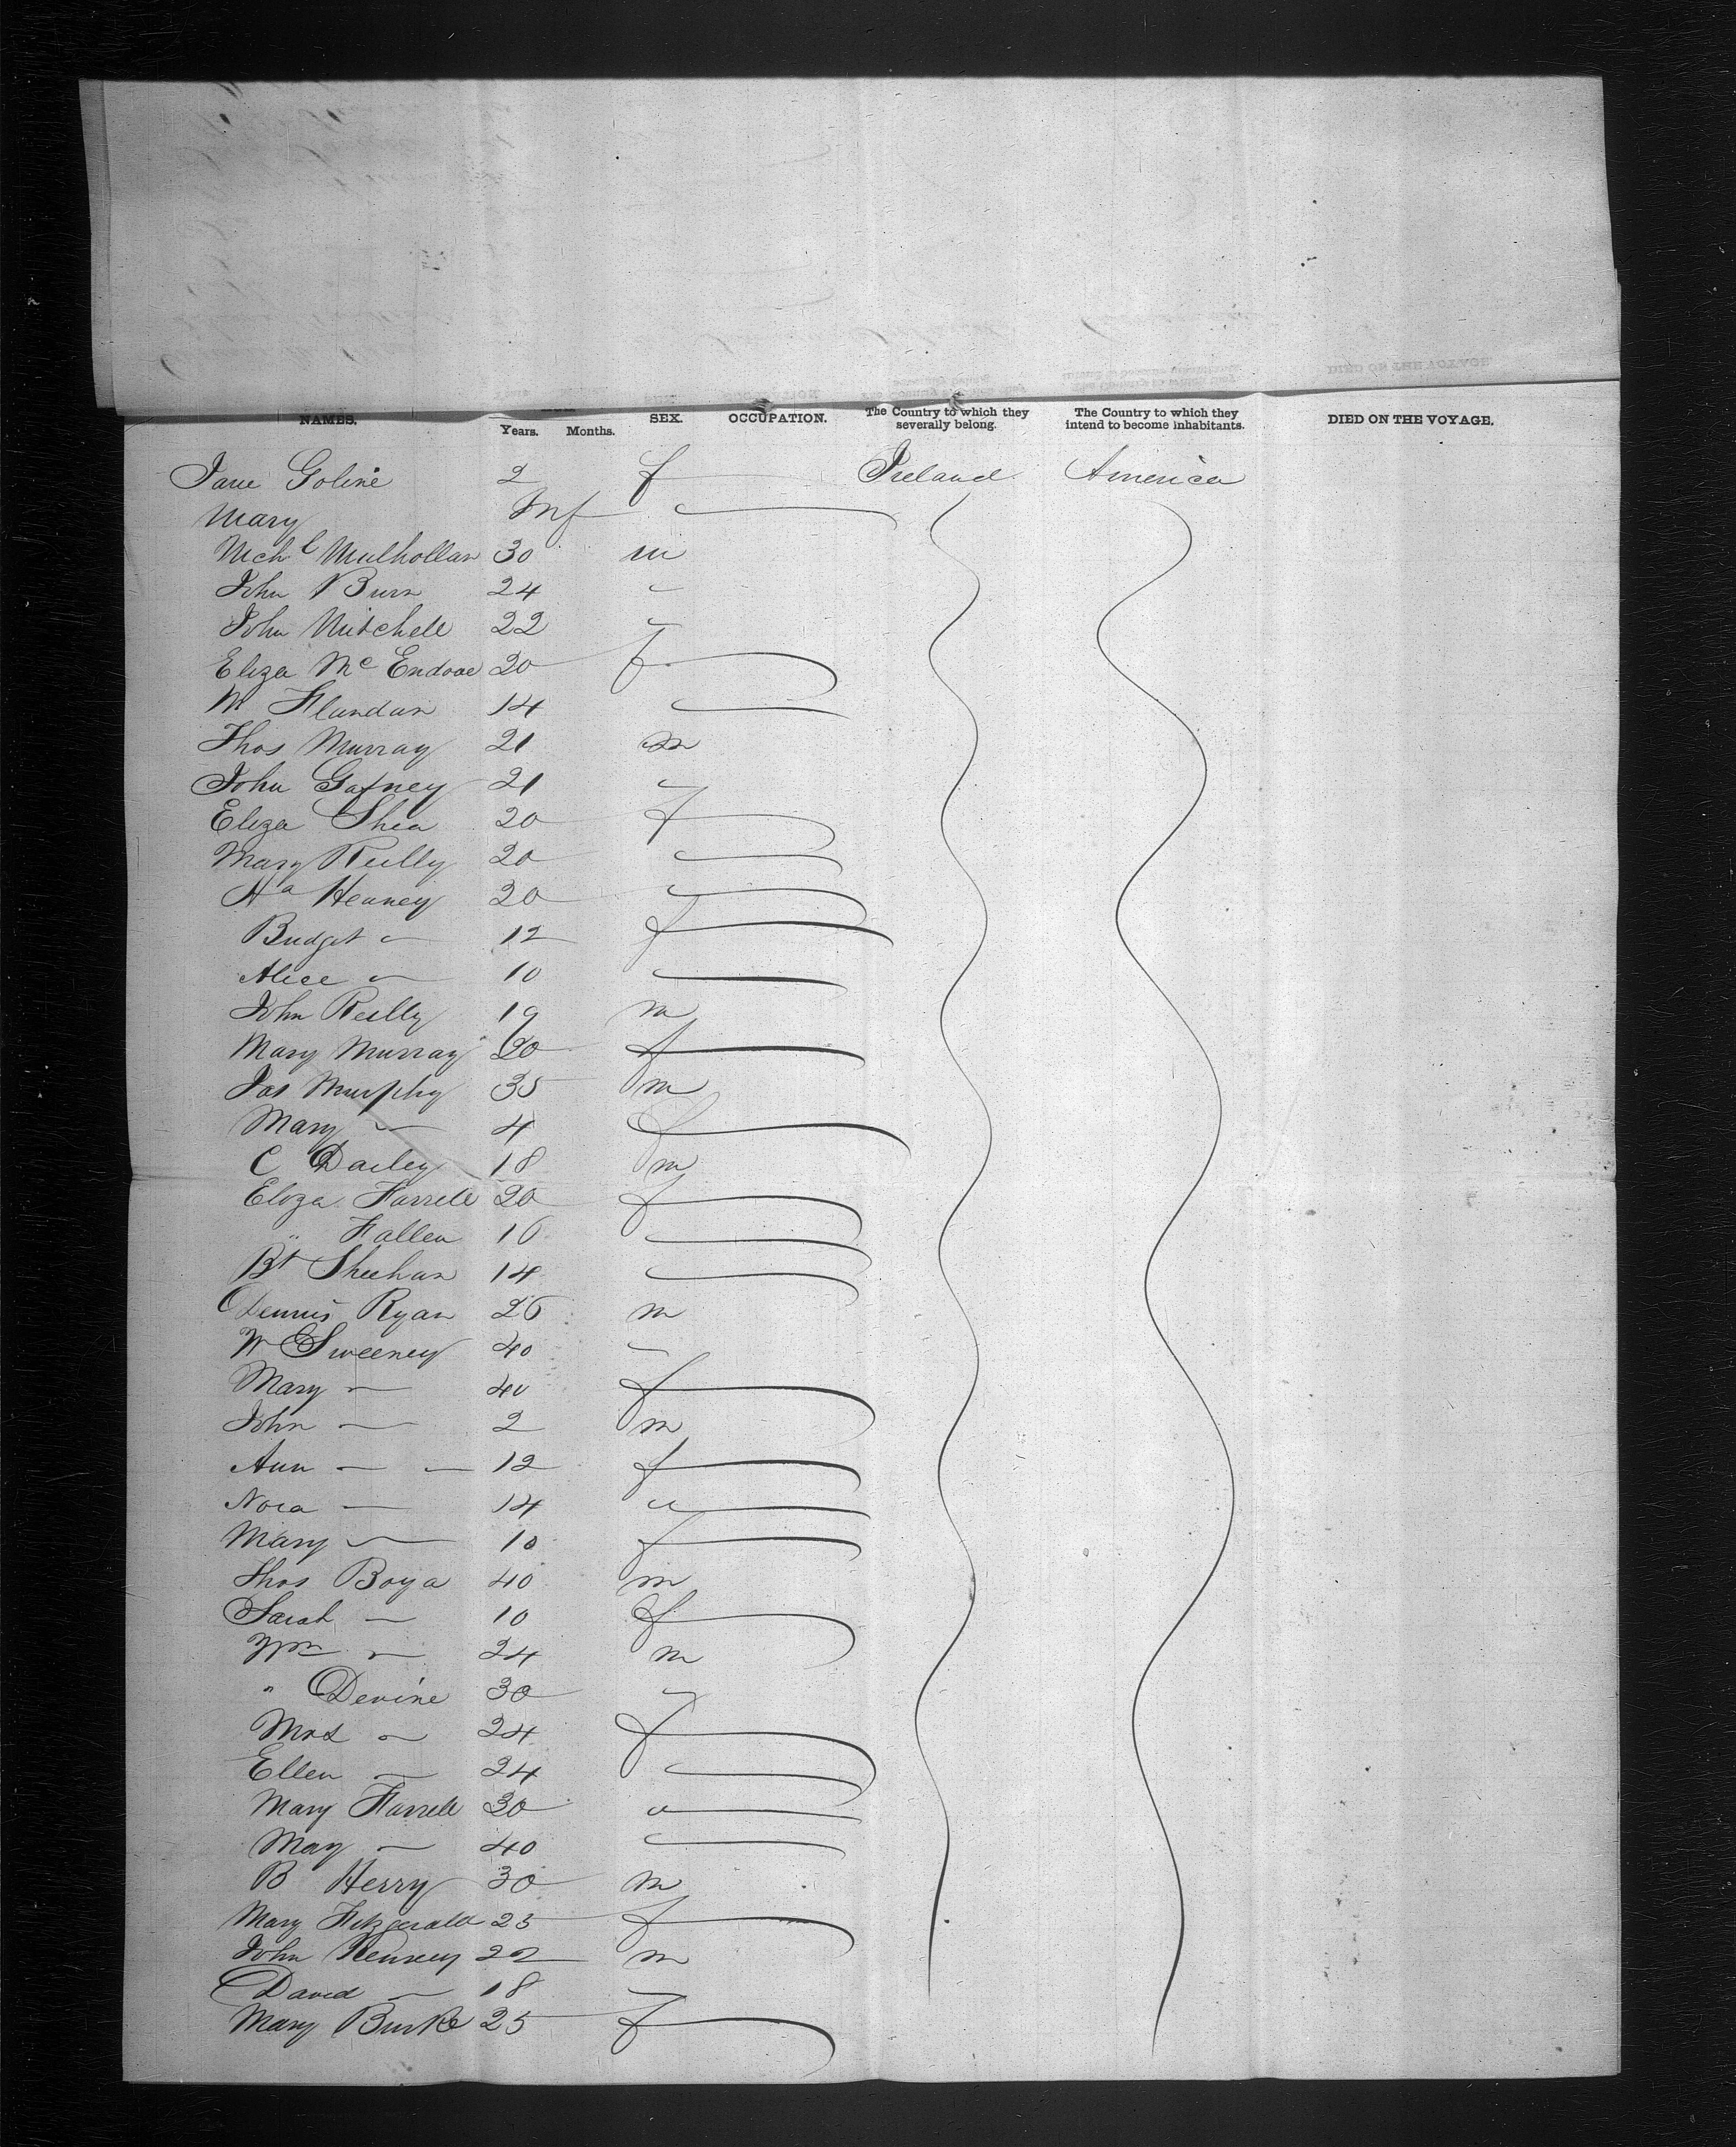 NAMES. Years. Months. SEX. OCCUPATION. The Country to which they severally belong. The Country to which they intend to become inhabitants. DIED ON THE VOYAGE.
Jane Goline 2 f Ireland America
Mary Inf "
Mich l Mulhollan 30 m
John Burn 24 "
John Mitchell 22 "
Eliza Mc Endooe 20 f
M Flandan 14 "
Thos Murray 21 m
John Gafney 21 "
Eliza Shea 20 f
Mary Reilly 20 "
Ha Heaney 20 "
Bridget " 12 f
Alice " 10 "
John Reilly 19 m
Mary Murray 20 f
Jas Murphy 35 m
Mary " 4 f
C Dailey 18 m
Eliza Farrell 20 f
" Fallen 16 "
Bt Sheehan 14 "
Dennis Ryan 26 m
W Sweeney 40 "
Mary " 40 f
John " 2 m
Ann " 12 f
Nora " 14 "
Mary " 10 f
Thos Boya 40 m
Sarah " 10 f
Wm " 24 m
" Devine 30 "
Mrs " 24 f
Ellen " 24 "
Mary Farrell 30 "
May " 40 "
B Herry 30 m
Mary Fitzgerald 23 f
John Kenney 22 m
David " 18 "
Mary Burke 25 f